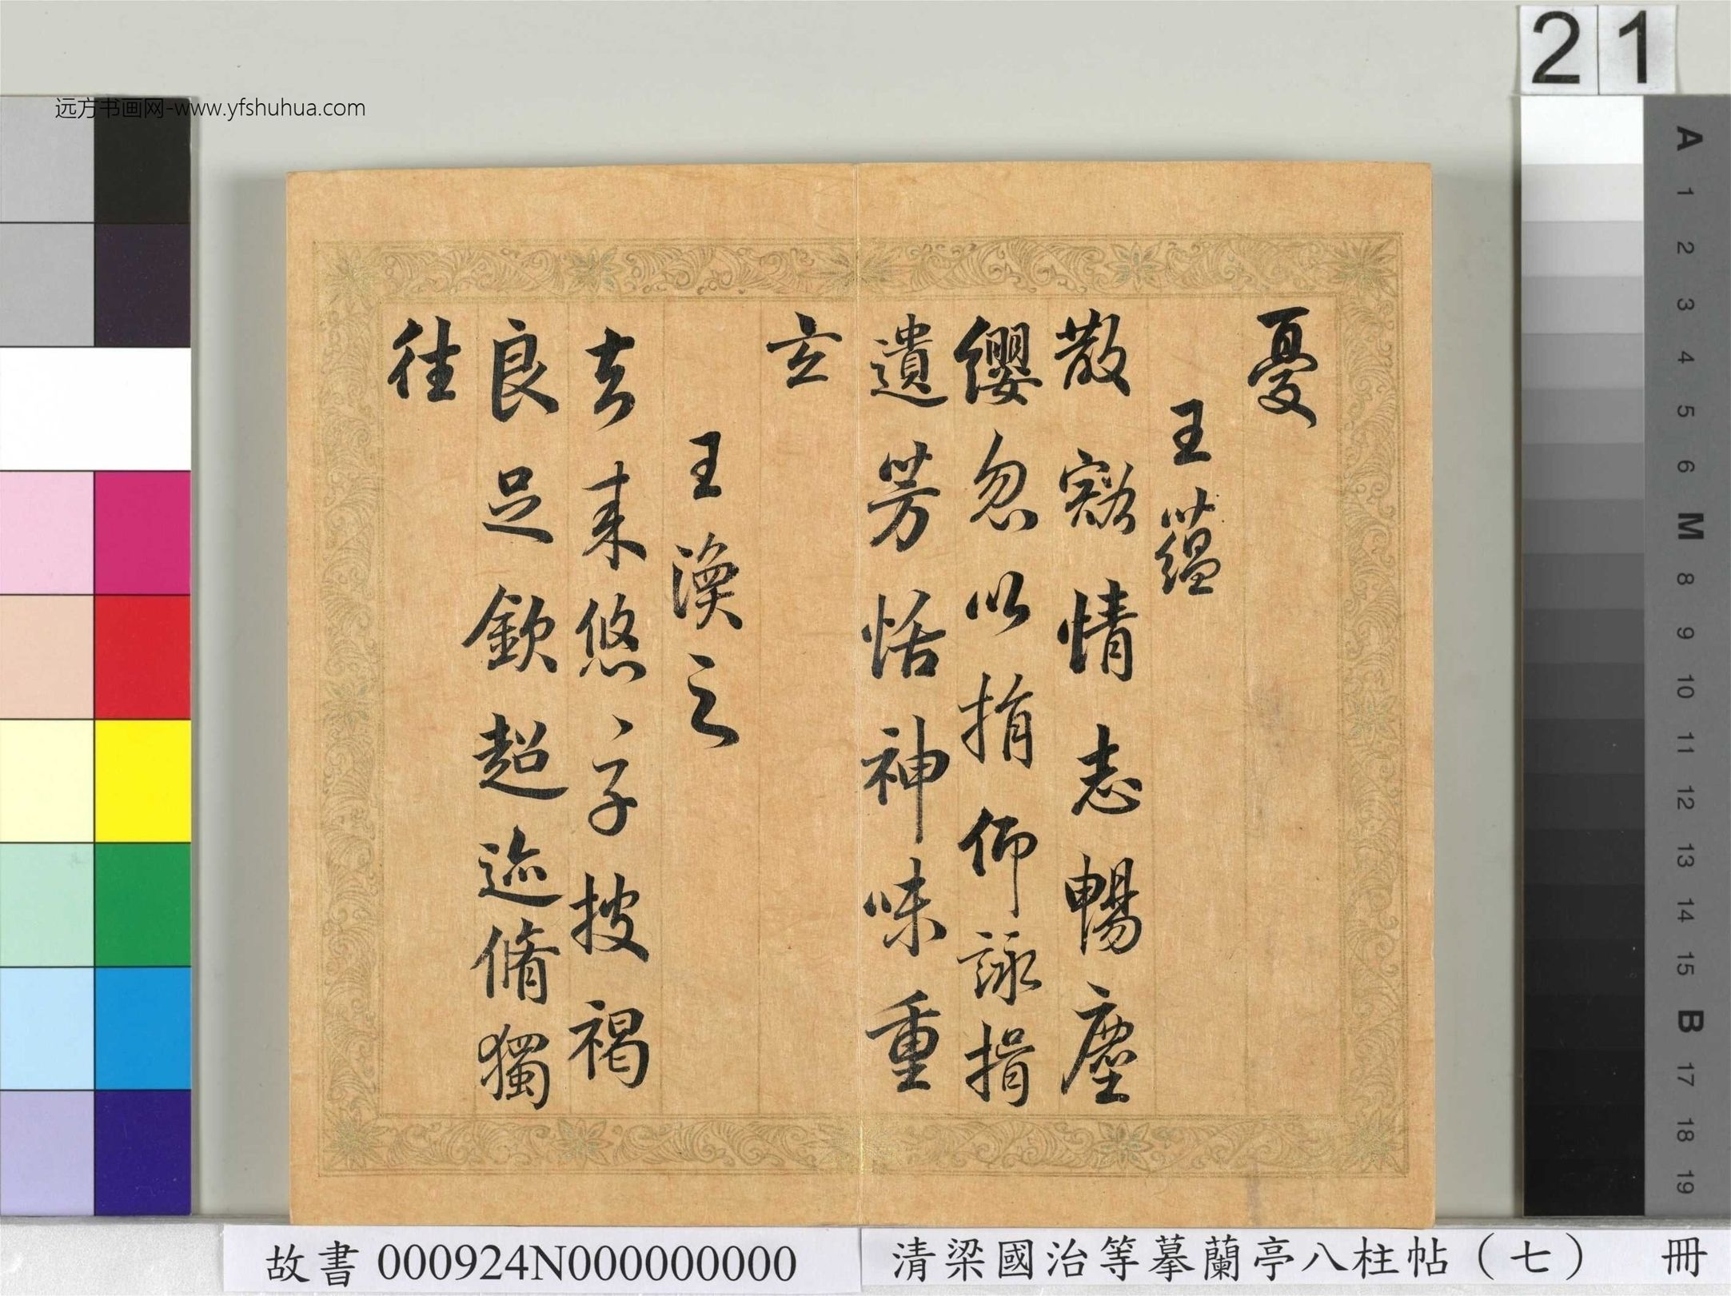 远方书画网-www.yfshuhua.com
21
憂
王蘊
散豁情志暢塵
纓忽以捐仰詠揖
遺芳恬神味重
玄
王渙之
去来悠〻子披褐
良足欽超迹脩獨
往
A
1
2
3
4
5
6
M
8
9
10
11
12
13
14
15
B
17
18
19
故書 000924N000000000
清梁國治等摹蘭亭八柱帖（七） 冊